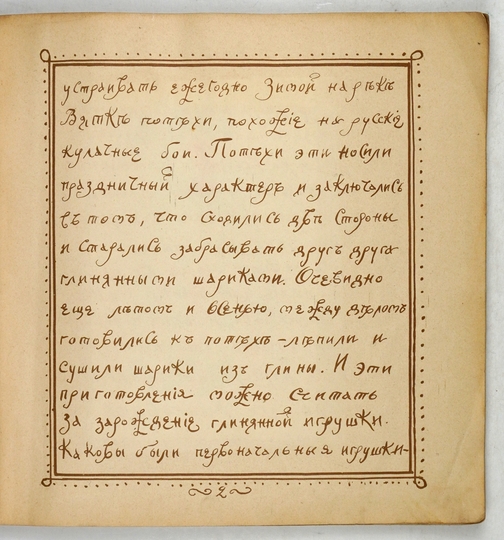 устраивать ежегодно зимой на рѣкѣ
Вяткѣ потѣхи, похожіе на русскіе
кулачные бои. Потѣхи эти носили
праздничный характеръ и заключались
въ томъ, что сходились двѣ стороны
и старались забрасывать другъ друга
глиняными шариками. Очевидно
еще лѣтомъ и осенью, между дѣломъ
готовились къ потѣхѣ - лѣпили и
сушили шарики изъ глины. И эти
приготовленія можно считать
за зарожденіе глиняной игрушки.
Каковы были первоначальные игрушки-
2